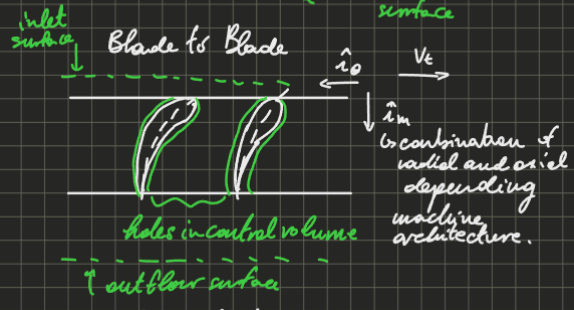 surface
inlet
surface
Blade to Blade
î_θ
V_t
î_m
↳ combination of
radial and axial
depending
machine
architecture.
holes in control volume
↑ outflow surface